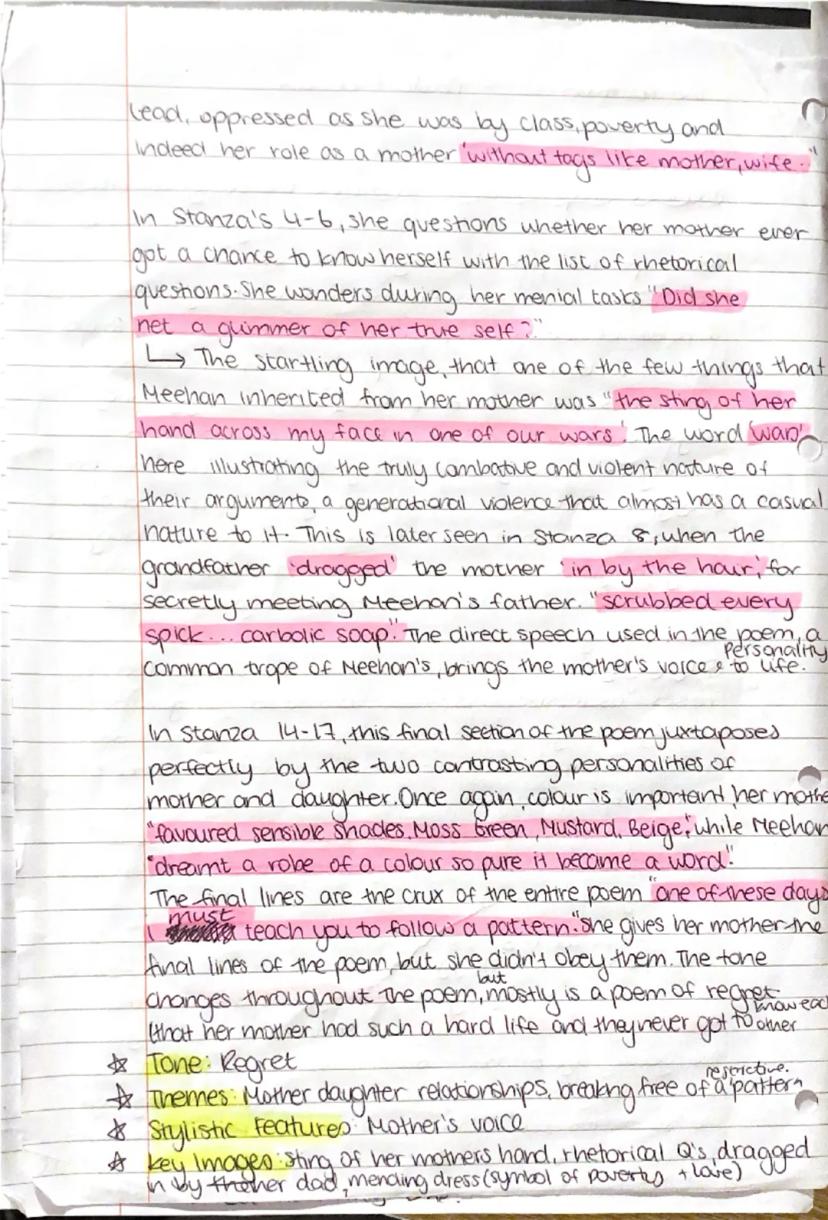 lead, oppressed as she was by class, poverty and
indeed her role as a mother 'without tags like mother, wife.."
In Stanza's 4-6, she questions whether her mother ever
got a chance to know herself with the list of rhetorical
questions. She wonders during her menial tasks "Did she
net a glimmer of her true self?"
↳ The startling image, that one of the few things that
Meehan inherited from her mother was "the sting of her
hand across my face in one of our wars'. The word 'war'
here illustrating the truly combative and violent nature of
their arguments, a generational violence that almost has a casual
nature to it. This is later seen in Stanza 8, when the
grandfather 'dragged' the mother 'in by the hair', for
secretly meeting Meehan's father. "scrubbed every
spick... carbolic soap." The direct speech used in the poem, a
common trope of Meehan's, brings the mother's voice & personality to life.
In Stanza 14-17, this final section of the poem juxtaposes
perfectly by the two contrasting personalities of
mother and daughter. Once again, colour is important, her mothe
"favoured sensible shades, Moss Green, Mustard, Beige", while Meehan
"dreamt a robe of a colour so pure it became a word".
The final lines are the crux of the entire poem "one of these days
I must teach you to follow a pattern." She gives her mother the
final lines of the poem, but she didn't obey them. The tone
changes throughout the poem, but mostly is a poem of regret
(that her mother had such a hard life and they never got to know each other
☆ Tone: Regret
☆ Themes: Mother daughter relationships, breakng free of a restrictive. pattern
☆ Stylistic Features: Mother's voice
☆ Key Images: sting of her mothers hand, rhetorical Q's, dragged
in by her dad, mending dress (symbol of poverty + love)